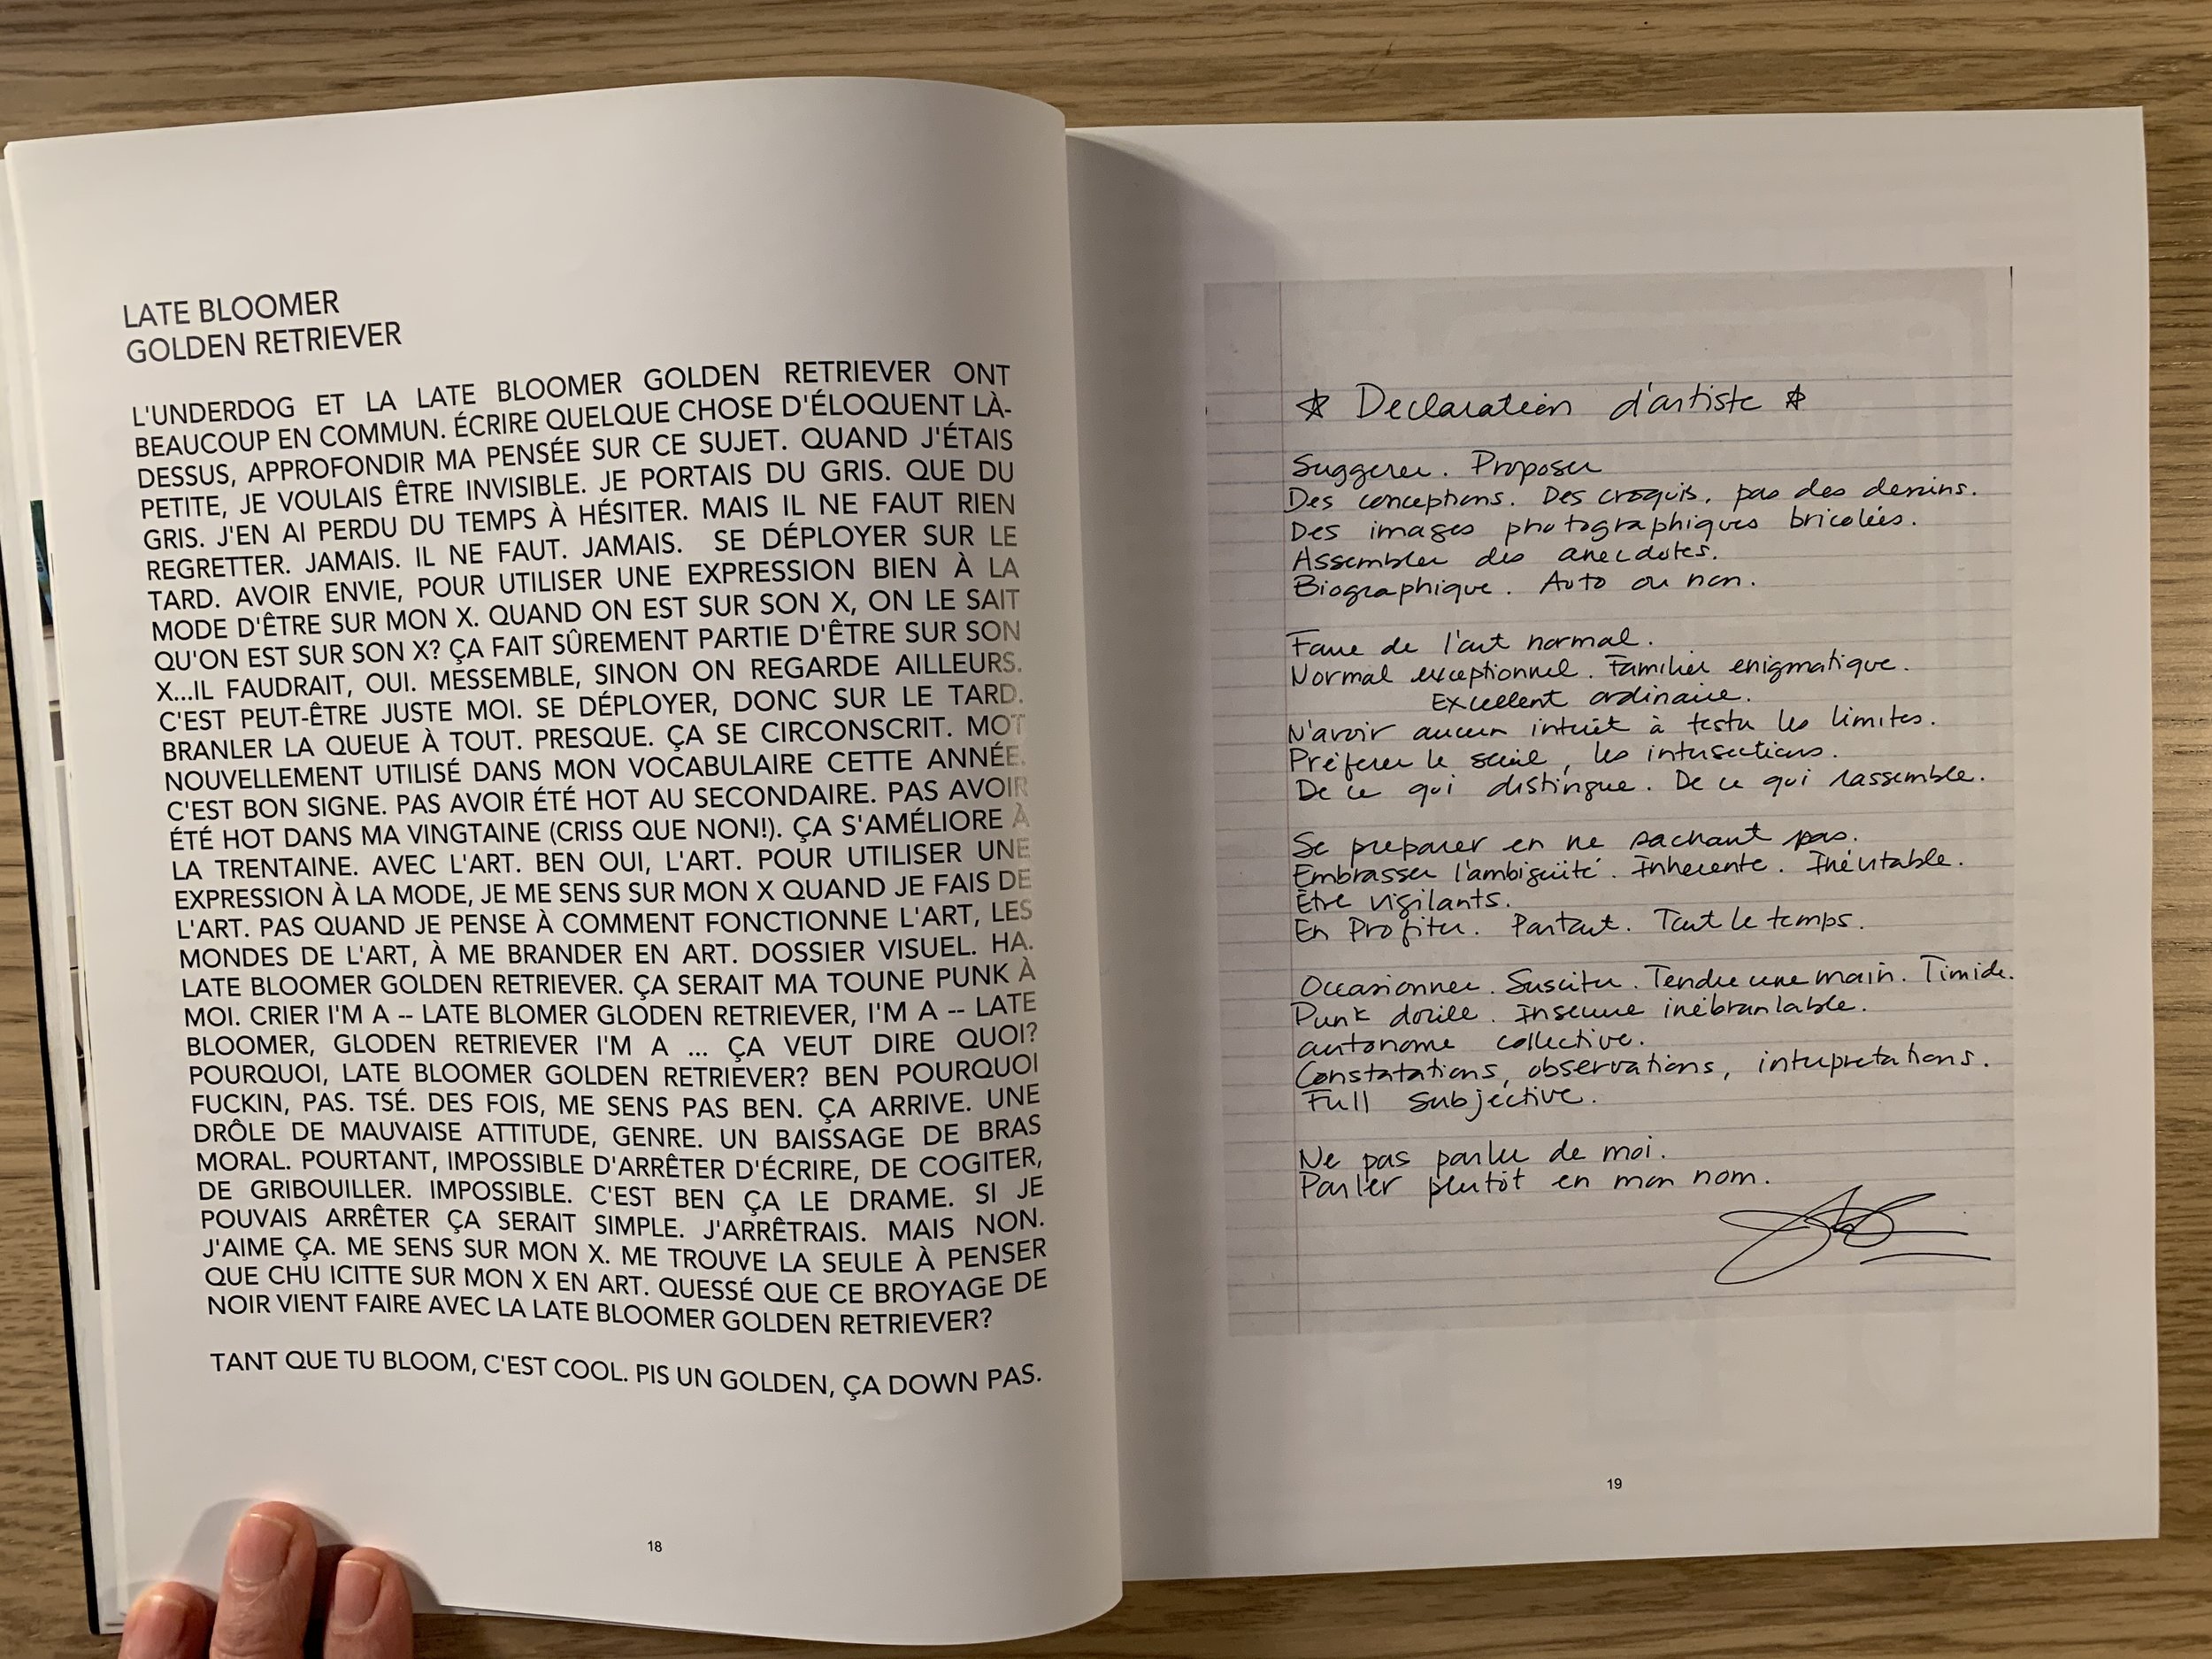 LATE BLOOMER
GOLDEN RETRIEVER
L'UNDERDOG ET LA LATE BLOOMER GOLDEN RETRIEVER ONT
BEAUCOUP EN COMMUN. ÉCRIRE QUELQUE CHOSE D'ÉLOQUENT LÀ-
DESSUS, APPROFONDIR MA PENSÉE SUR CE SUJET. QUAND J'ÉTAIS
PETITE, JE VOULAIS ÊTRE INVISIBLE. JE PORTAIS DU GRIS. QUE DU
GRIS. J'EN AI PERDU DU TEMPS À HÉSITER. MAIS IL NE FAUT RIEN
REGRETTER. JAMAIS. IL NE FAUT. JAMAIS. SE DÉPLOYER SUR LE
TARD. AVOIR ENVIE, POUR UTILISER UNE EXPRESSION BIEN À LA
MODE D'ÊTRE SUR MON X. QUAND ON EST SUR SON X, ON LE SAIT
QU'ON EST SUR SON X? ÇA FAIT SÛREMENT PARTIE D'ÊTRE SUR SON
X...IL FAUDRAIT, OUI. MESSEMBLE, SINON ON REGARDE AILLEURS.
C'EST PEUT-ÊTRE JUSTE MOI. SE DÉPLOYER, DONC SUR LE TARD.
BRANLER LA QUEUE À TOUT. PRESQUE. ÇA SE CIRCONSCRIT. MOT
NOUVELLEMENT UTILISÉ DANS MON VOCABULAIRE CETTE ANNÉE.
C'EST BON SIGNE. PAS AVOIR ÉTÉ HOT AU SECONDAIRE. PAS AVOIR
ÉTÉ HOT DANS MA VINGTAINE (CRISS QUE NON!). ÇA S'AMÉLIORE À
LA TRENTAINE. AVEC L'ART. BEN OUI, L'ART. POUR UTILISER UNE
EXPRESSION À LA MODE, JE ME SENS SUR MON X QUAND JE FAIS DE
L'ART. PAS QUAND JE PENSE À COMMENT FONCTIONNE L'ART, LES
MONDES DE L'ART, À ME BRANDER EN ART. DOSSIER VISUEL. HA.
LATE BLOOMER GOLDEN RETRIEVER. ÇA SERAIT MA TOUNE PUNK À
MOI. CRIER I'M A -- LATE BLOMER GLODEN RETRIEVER, I'M A -- LATE
BLOOMER, GLODEN RETRIEVER I'M A ... ÇA VEUT DIRE QUOI?
POURQUOI, LATE BLOOMER GOLDEN RETRIEVER? BEN POURQUOI
FUCKIN, PAS. TSÉ. DES FOIS, ME SENS PAS BEN. ÇA ARRIVE. UNE
DRÔLE DE MAUVAISE ATTITUDE, GENRE. UN BAISSAGE DE BRAS
MORAL. POURTANT, IMPOSSIBLE D'ARRÊTER D'ÉCRIRE, DE COGITER,
DE GRIBOUILLER. IMPOSSIBLE. C'EST BEN ÇA LE DRAME. SI JE
POUVAIS ARRÊTER ÇA SERAIT SIMPLE. J'ARRÊTRAIS. MAIS NON.
J'AIME ÇA. ME SENS SUR MON X. ME TROUVE LA SEULE À PENSER
QUE CHU ICITTE SUR MON X EN ART. QUESSÉ QUE CE BROYAGE DE
NOIR VIENT FAIRE AVEC LA LATE BLOOMER GOLDEN RETRIEVER?
TANT QUE TU BLOOM, C'EST COOL. PIS UN GOLDEN, ÇA DOWN PAS.
18
☆ Declaration d'artiste ☆
Suggerer. Proposer
Des conceptions. Des croquis, pas des dessins.
Des images photographiques bricolées.
Assembler des anecdotes.
Biographique. Auto ou non.
Faire de l'art normal.
Normal exceptionnel. Familier enigmatique.
Excellent ordinaire.
N'avoir aucun intérêt à tester les limites.
Préferer le seuil, les intersections.
De ce qui distingue. De ce qui rassemble.
Se preparer en ne sachant pas.
Embrasser l'ambiguïté. Inherente. Inévitable.
Être vigilants.
En Profiter. Partout. Tout le temps.
Occasionner. Susciter. Tendre une main. Timide.
Punk docile. Insecure inébranlable.
autonome collective.
Constatations, observations, interpretations.
Full subjective.
Ne pas parler de moi.
Parler plutôt en mon nom.
19